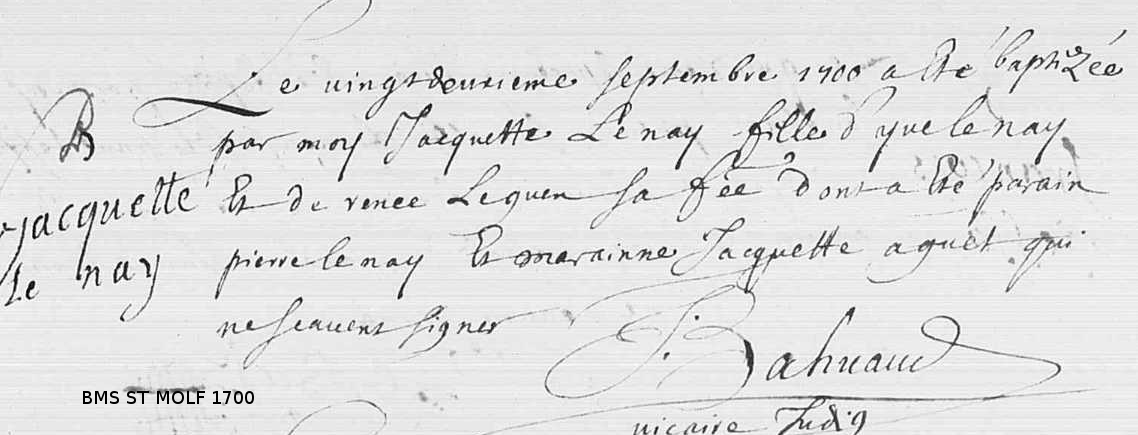 B
Jacquette
Le nay
Le vingtdeuxieme septembre 1700 a Eté baptizée
par moy Jacquette Le nay fille d'yue le nay
Et de renee Leguen sa fée dont a Eté parain
pierre le nay Et marainne Jacquette aguet qui
ne scauent signer
J. Bahuaud
vicaire Indig
BMS ST MOLF 1700